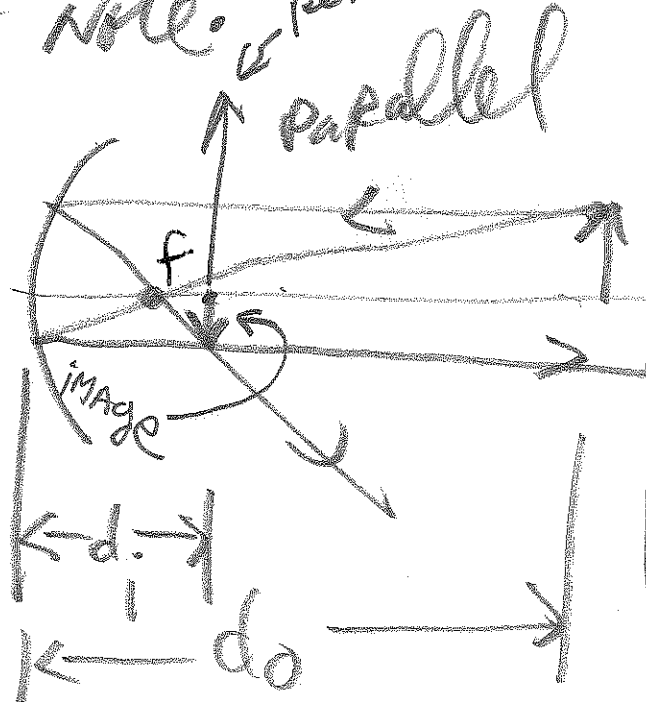 Note:
parallel
f
image
di
do